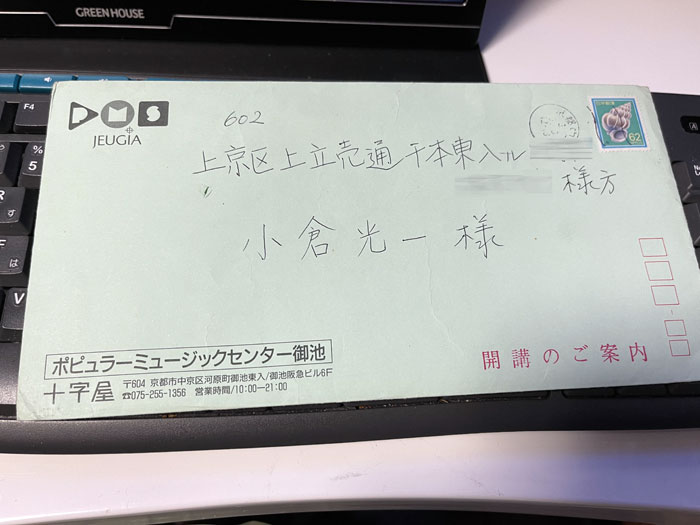 GREEN HOUSE
DMS
JEUGIA
602
日本郵便
62
上京区上立売通千本東入ル
様方
小倉光一様
開講のご案内
ポピュラーミュージックセンター御池
十字屋
〒604 京都市中京区河原町御池東入/御池阪急ビル6F
☎075-255-1356 営業時間/10:00−21:00
F4
%
5
R
す
F
は
V